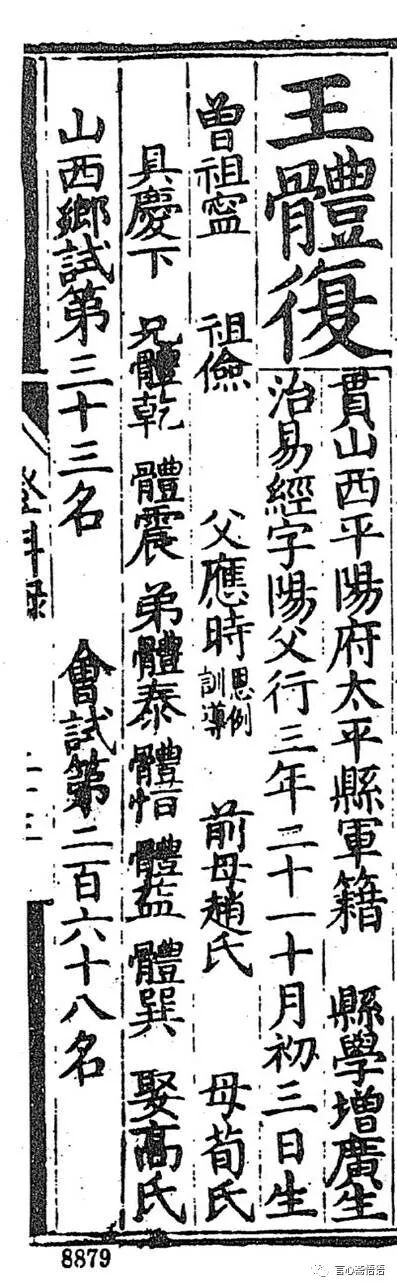 王體復
貫山西平陽府太平縣軍籍 縣學增廣生
治易經字陽父行三年二十一十月初三日生
曾祖寍 祖儉 父應時恩例訓導 前母趙氏 母荀氏
具慶下 兄體乾 體震 弟體泰 體恒 體益 體巽 娶高氏
山西鄉試第三十三名 會試第二百六十八名
登科録
8879
言心斋悟语